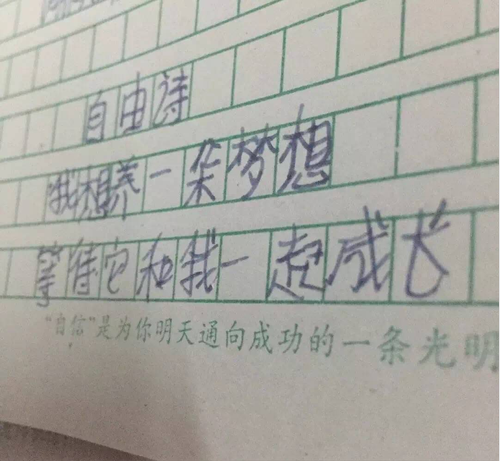 自由诗
我想养一朵梦想
等待它和我一起成长
“自信”是为你明天通向成功的一条光明